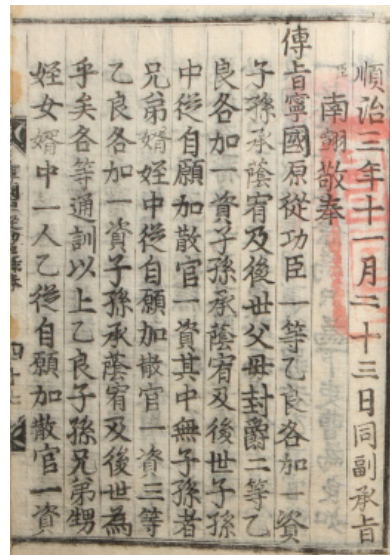 順治三年十一月二十三日同副承旨
臣南翧敬奉
傳旨寧國原從功臣一等乙良各加一資
子孫承蔭宥及後世父母封爵二等乙
良各加一資子孫承蔭宥及後世子孫
中從自願加散官一資其中無子孫者
兄弟婿姪中從自願加散官一資三等
乙良各加一資子孫承蔭宥及後世為
乎矣各等通訓以上乙良子孫兄弟甥
姪女婿中一人乙從自願加散官一資